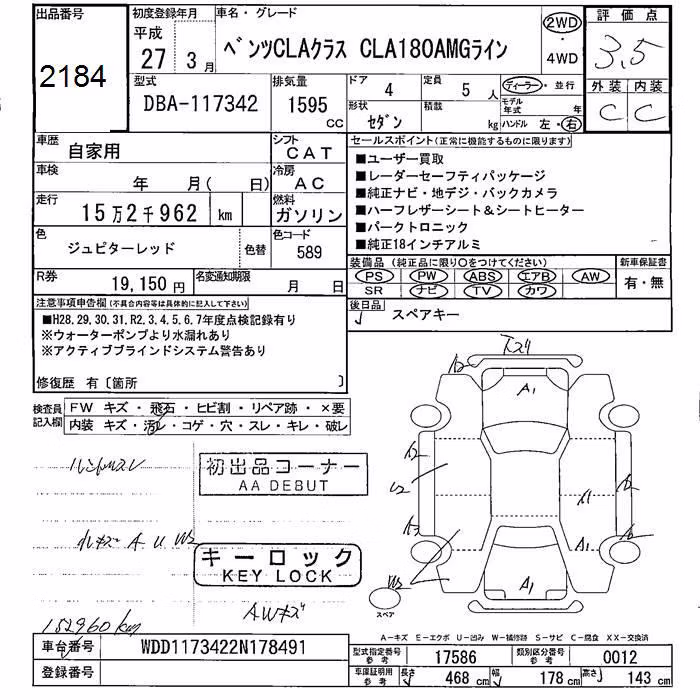 出品番号
2184
初度登録年月
平成
27 3月
車名・グレード
ベンツCLAクラス CLA180AMGライン
2WD
・
4WD
評価点
3.5
外装 内装
C C
型式
DBA-117342
排気量
1595
CC
ドア
4
定員
5 人
形状
セダン
積載
kg
ディーラー・並行
モデル年式 年
ハンドル 左・右
車歴
自家用
シフト
CAT
車検
年 月( 日)
冷房
AC
走行
15万2千962 km
燃料
ガソリン
色
ジュピターレッド
色替
色コード
589
R券
19,150円
名変通知期限
月 日
セールスポイント(正常に機能するものに限ります)
■ユーザー買取
■レーダーセーフティパッケージ
■純正ナビ・地デジ・バックカメラ
■ハーフレザーシート＆シートヒーター
■パークトロニック
■純正18インチアルミ
装備品 (純正品に限り〇をつけてください)
PS PW ABS エアB AW
SR ナビ TV カワ
新車保証書
有・無
後日品
スペアキー
注意事項申告欄(不具合内容等は具体的に記入して下さい)
■H28,29,30,31,R2,3,4,5,6,7年度点検記録有り
※ウォーターポンプより水漏れあり
※アクティブブラインドシステム警告あり
修復歴 有〔箇所 〕
検査員記入欄
FW キズ・飛石・ヒビ割・リペア跡・×要
内装 キズ・汚レ・コゲ・穴・スレ・キレ・破レ
初出品コーナー
AA DEBUT
キーロック
KEY LOCK
AWキズ
152960km
A1
A1
A1
スペア
A-キズ E-エクボ U-凹み W-補修跡 S-サビ C-腐食 XX-交換済
車台番号
WDD1173422N178491
登録番号
型式指定番号
参考
17586
類別区分番号
参考
0012
車庫証明用
参考
長さ
468 cm
幅
178 cm
高さ
143 cm